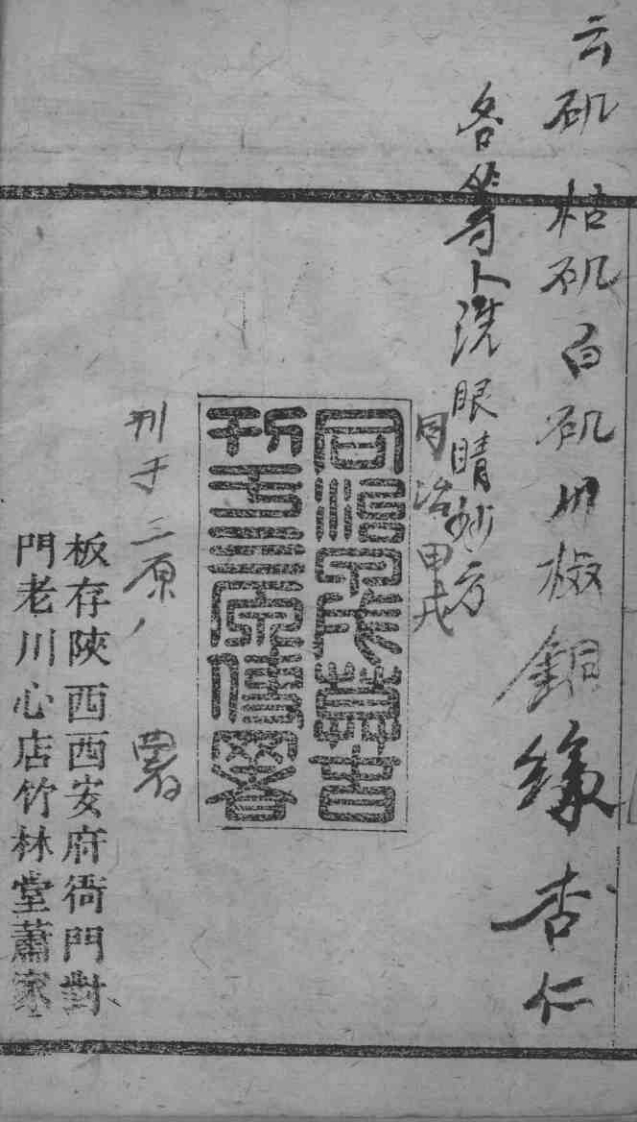 云矾枯矾白矾川椒銅緣杏仁
各等卜洗眼睛妙方
同治甲戌
同治甲戌
刊于三原署
刊于三原署
板存陝西西安府衙門對
門老川心店竹林堂蕭家